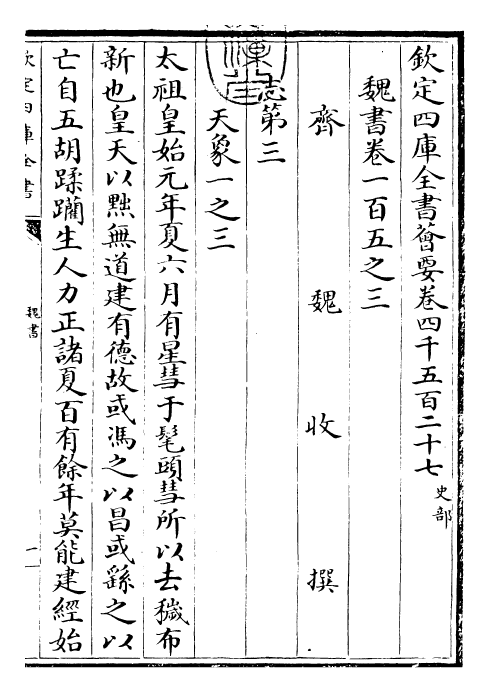 欽定四庫全書薈要卷四千五百二十七 史部
魏書卷一百五之三
齊 魏 收 撰
志第三
天象一之三
太祖皇始元年夏六月有星彗于髦頭彗所以去穢布
新也皇天以黜無道建有德故或馮之以昌或繇之以
亡自五胡蹂躪生人力正諸夏百有餘年莫能建經始
欽定四庫全書
魏書
一